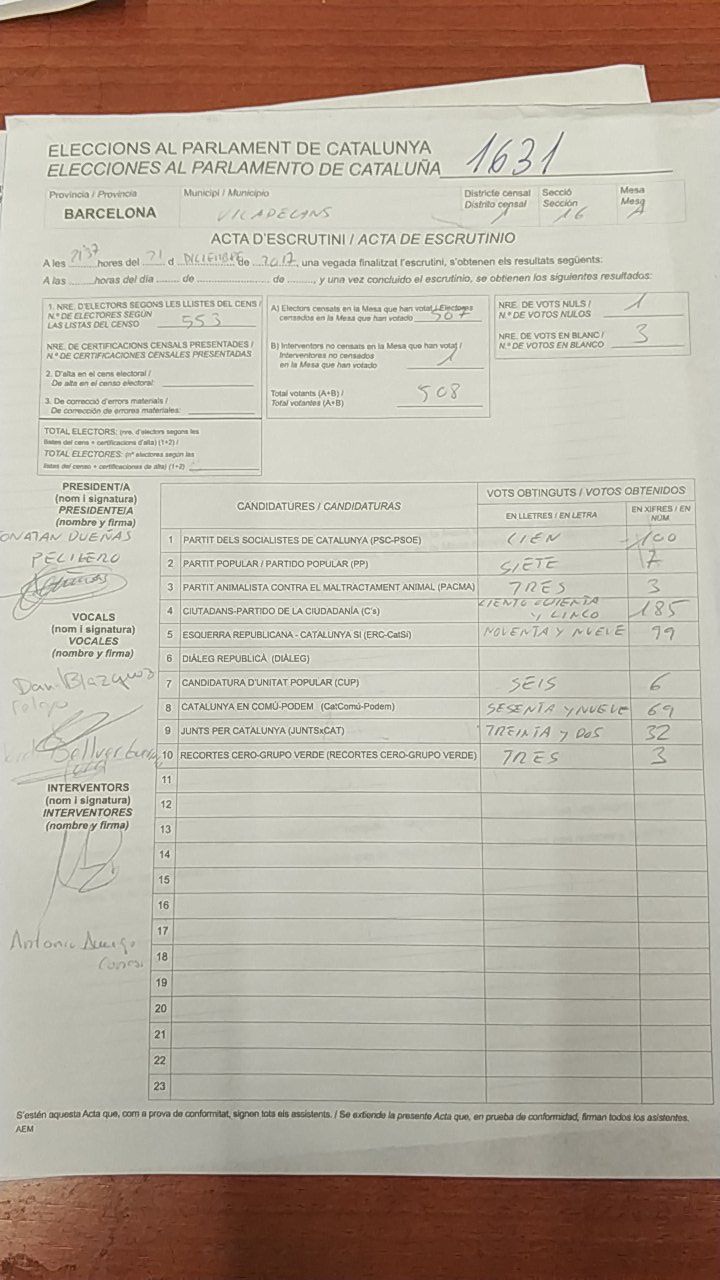 ELECCIONS AL PARLAMENT DE CATALUNYA
ELECCIONES AL PARLAMENTO DE CATALUÑA 1631
Província / Provincia
BARCELONA
Municipi / Municipio
VILADECANS
Districte censal
Distrito censal
1
Secció
Sección
16
Mesa
Mesa
A
ACTA D'ESCRUTINI / ACTA DE ESCRUTINIO
A les 2137 hores del 21 d DICIEMBRE de 2017, una vegada finalitzat l'escrutini, s'obtenen els resultats següents:
A las ........horas del día ...... de .................... de ........, y una vez concluido el escrutinio, se obtienen los siguientes resultados:
1. NRE. D'ELECTORS SEGONS LES LLISTES DEL CENS /
N.º DE ELECTORES SEGÚN
LAS LISTAS DEL CENSO 553
NRE. DE CERTIFICACIONS CENSALS PRESENTADES /
N.º DE CERTIFICACIONES CENSALES PRESENTADAS
2. D'alta en el cens electoral /
De alta en el censo electoral:
3. De correcció d'errors materials /
De corrección de errores materiales:
TOTAL ELECTORS: (nre. d'electors segons les
llistes del cens + certificacions d'alta) (1+2) /
TOTAL ELECTORES: (nº electores según las
listas del censo + certificaciones de alta) (1+2)
A) Electors censats en la Mesa que han votat / Electores
censados en la Mesa que han votado 507
B) Interventors no censats en la Mesa que han votat /
Interventores no censados
en la Mesa que han votado 1
Total votants (A+B) /
Total votantes (A+B) 508
NRE. DE VOTS NULS /
N.º DE VOTOS NULOS 1
NRE. DE VOTS EN BLANC /
N.º DE VOTOS EN BLANCO 3
PRESIDENT/A
(nom i signatura)
PRESIDENTE/A
(nombre y firma)
ONATAN DUEÑAS
VOCALS
(nom i signatura)
VOCALES
(nombre y firma)
Dani Blazquez
INTERVENTORS
(nom i signatura)
INTERVENTORES
(nombre y firma)
Antonio
CANDIDATURES / CANDIDATURAS
VOTS OBTINGUTS / VOTOS OBTENIDOS
EN LLETRES / EN LETRA
EN XIFRES / EN NÚM.
1 PARTIT DELS SOCIALISTES DE CATALUNYA (PSC-PSOE) CIEN 100
2 PARTIT POPULAR / PARTIDO POPULAR (PP) SIETE 7
3 PARTIT ANIMALISTA CONTRA EL MALTRACTAMENT ANIMAL (PACMA) TRES 3
4 CIUTADANS-PARTIDO DE LA CIUDADANÍA (C's) CIENTO OCHENTA Y CINCO 185
5 ESQUERRA REPUBLICANA - CATALUNYA SÍ (ERC-CatSí) NOVENTA Y NUEVE 99
6 DIÀLEG REPUBLICÀ (DIÀLEG)
7 CANDIDATURA D'UNITAT POPULAR (CUP) SEIS 6
8 CATALUNYA EN COMÚ-PODEM (CatComú-Podem) SESENTA y NUEVE 69
9 JUNTS PER CATALUNYA (JUNTSxCAT) TREINTA y DOS 32
10 RECORTES CERO-GRUPO VERDE (RECORTES CERO-GRUPO VERDE) TRES 3
11
12
13
14
15
16
17
18
19
20
21
22
23
S'estén aquesta Acta que, com a prova de conformitat, signen tots els assistents. / Se extiende la presente Acta que, en prueba de conformidad, firman todos los asistentes.
AEM